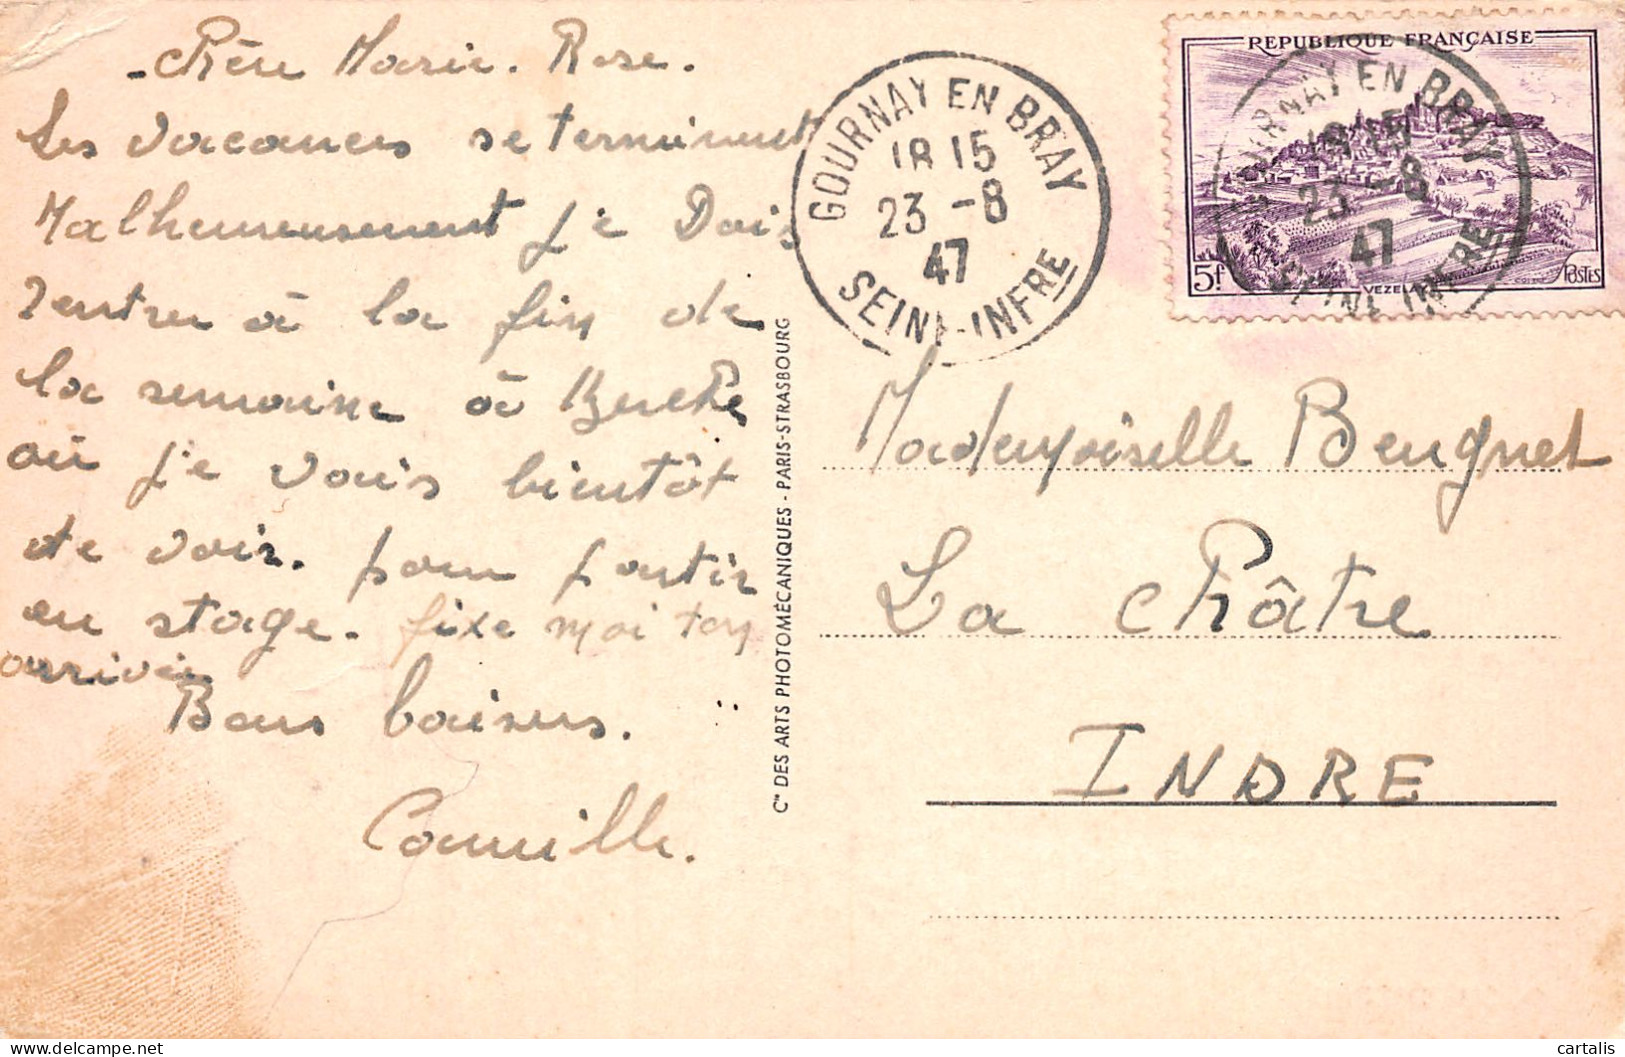 - chère Marie. Rose.
Les vacances se terminent
Malheureusement je Dois
rentrer à la fin de
la semaine à Berche
où je vais bientôt
te voir. pour partir
en stage. fixe moi ton
arrivée
Bons baisers.
Camille.
Cie DES ARTS PHOTOMÉCANIQUES - PARIS-STRASBOURG
GOURNAY EN BRAY
18 15
23 -8
47
SEINE-INFRE
REPUBLIQUE FRANÇAISE
5f
VEZELAY
POSTES
GOURNAY EN BRAY
18 15
23 -8
47
SEINE INFRE
Mademoiselle Beugnet
La châtre
INDRE
cartalis